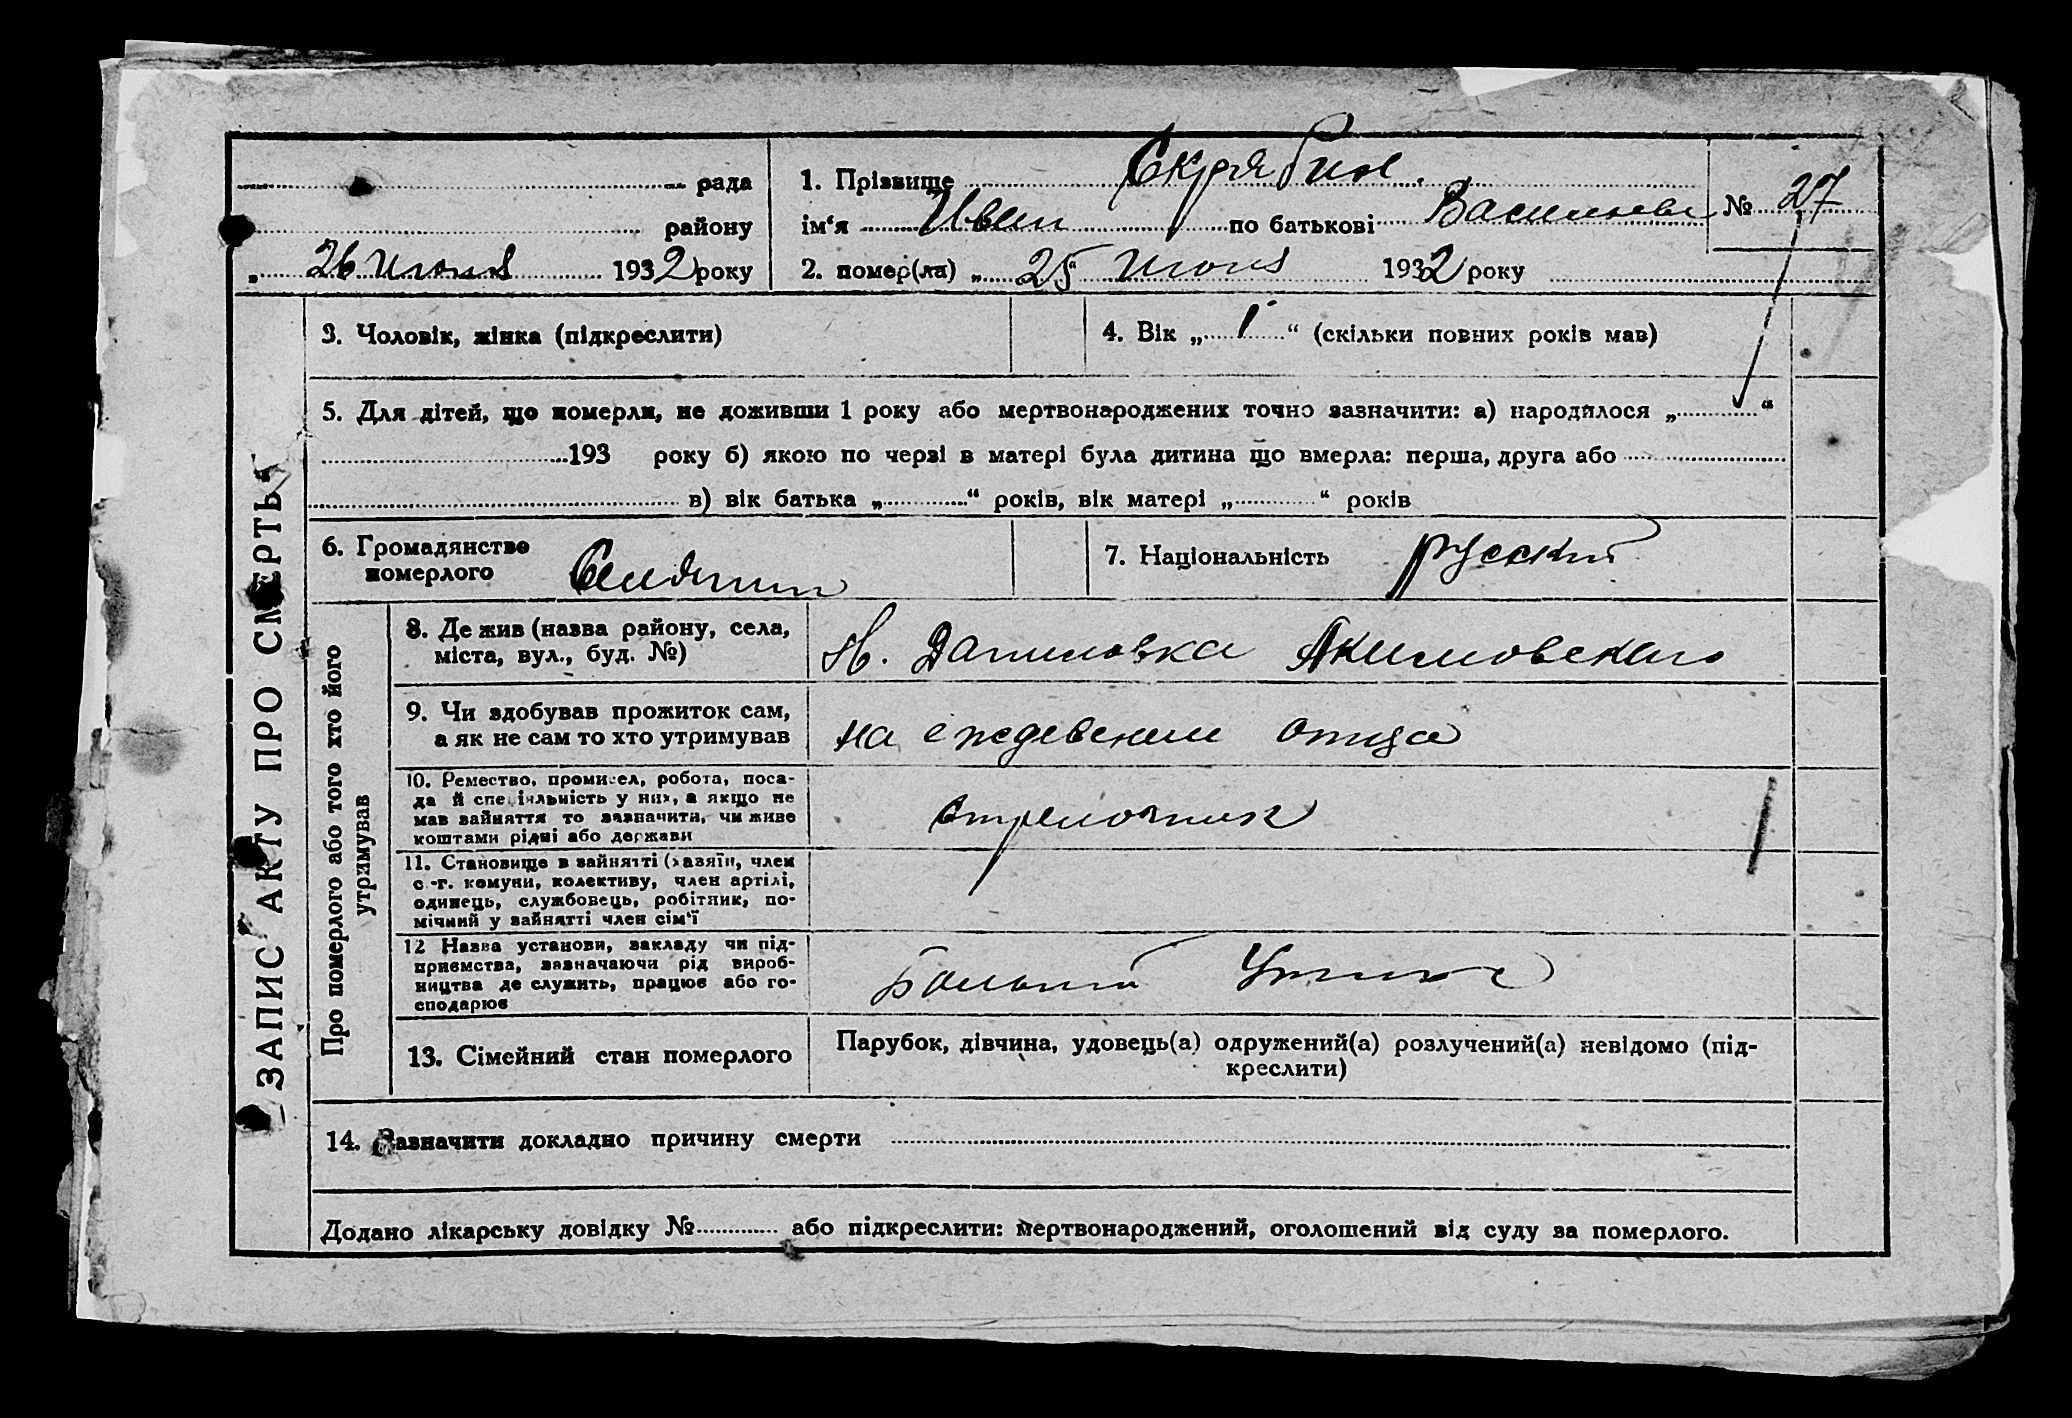 рада
району
„ 26 июня 1932 року
1. Прізвище Скрябин.
ім‘я Иван по батькові Васильев
2. помер(ла) „ 25“ июня 1932 року
№ 27
3. Чоловік, жінка (підкреслити)
4. Вік „ 1 “ (скільки повних років мав)
5. Для дітей, що померли, не доживши 1 року або мертвонароджених точно зазначити: а) народилося „ “
193 року б) якою по черзі в матері була дитина що вмерла: перша, друга або
в) вік батька „ “ років, вік матері „ “ років
6. Громадянство
померлого
7. Національність русский
ЗАПИС АКТУ ПРО СМЕРТЬ
Про померлого або того хто його
утримував
8. Де жив (назва району, села,
міста, вул., буд. №)
Н. Даниловка Акимовского
9. Чи здобував прожиток сам,
а як не сам то хто утримував
на иждевении отца
10. Ремество, промисел, робота, поса-
да й спеціяльність у них, а якщо не
мав зайняття то зазначити, чи живе
коштами рідні або держави
стрелочник
11. Становище в зайнятті (хазяїн, член
с.-г. комуни, колективу, член артілі,
одинець, службовець, робітник, по-
мічний у зайнятті член сім‘ї
12 Назва установи, закладу чи під-
приємства, зазначаючи рід вироб-
ництва де служить, працює або го-
сподарює
13. Сімейний стан померлого
Парубок, дівчина, удовець(а) одружений(а) розлучений(а) невідомо (під-
креслити)
14. Зазначити докладно причину смерти
Додано лікарську довідку № або підкреслити: мертвонароджений, оголошений від суду за померлого.